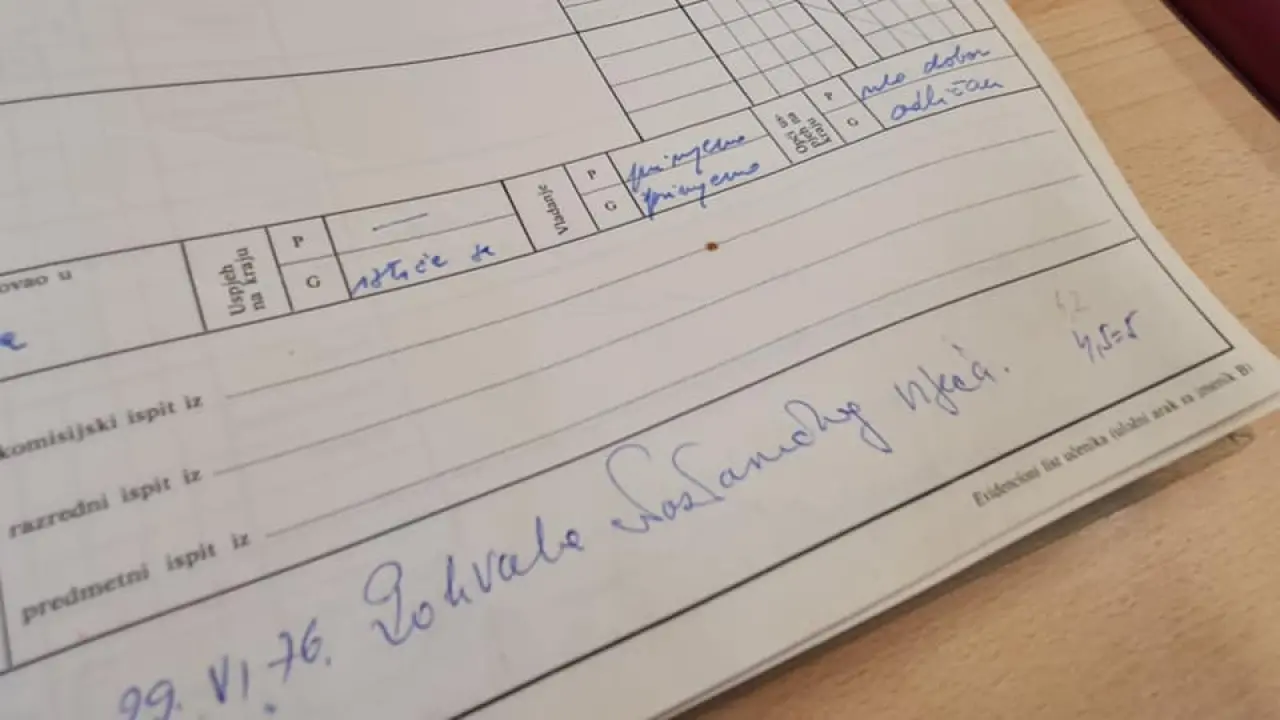 vrlo dobar
P
Opći us-
pjeh na
kraju
G
odličan
P
primjerno
Vladanje
G
primjerno
ovao u
P
Uspjeh
na kraju
G
ističe se
komisijski ispit iz
razredni ispit iz
predmetni ispit iz
4,5=5
29. VI. 76. Pohvala Nastavničkog vijeća.
Evidencioni list učenika (uložni arak za imenik B)